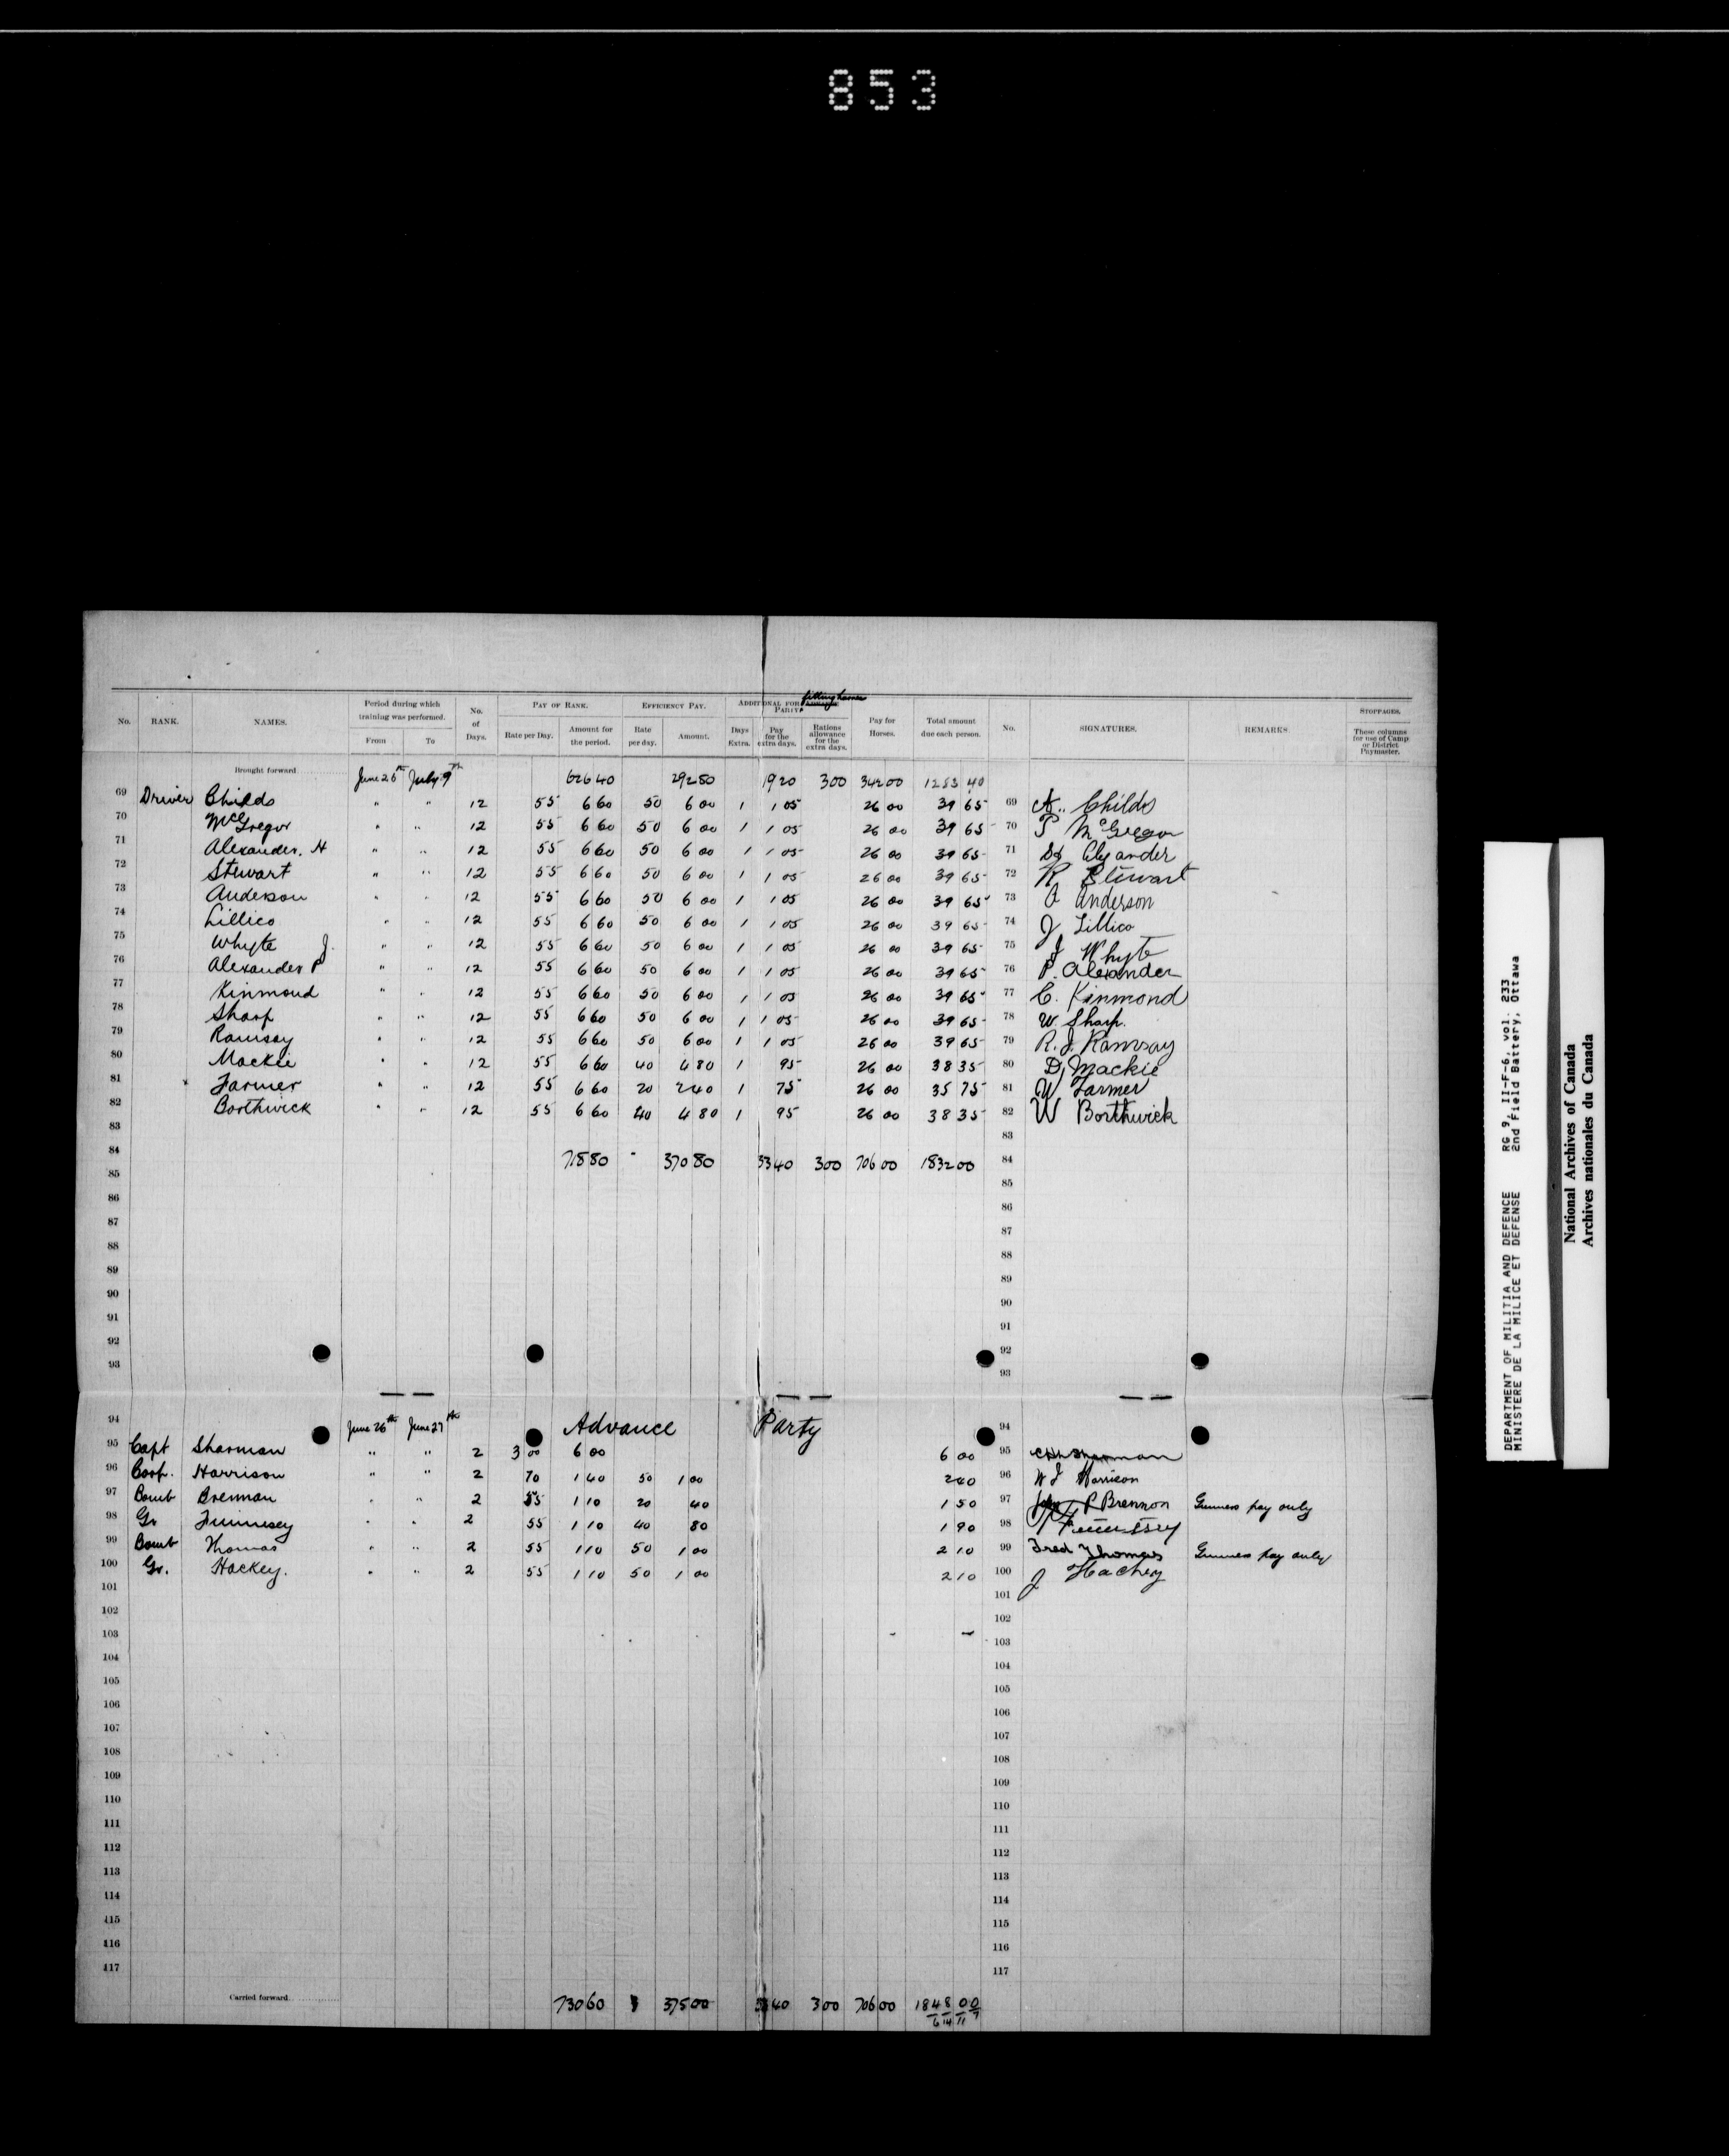 853
fitting harness
No. RANK. NAMES. Period during which training was performed. From To No. of Days. PAY OF RANK. Rate per Day. Amount for the period. EFFICIENCY PAY. Rate per day. Amount. ADDITIONAL FOR PARTY. Days Extra. Pay for the extra days. Rations allowance for the extra days. Pay for Horses. Total amount due each person. No. SIGNATURES. REMARKS. STOPPAGES. These columns for use of Camp or District Paymaster.
Brought forward June 28th July 9th 626 40 292 80 19 20 3 00 342 00 1283 40
69 Driver Childs " " 12 55 6 60 50 6 00 1 1 05 26 00 39 65 69 A. Childs
70 McGregor " " 12 55 6 60 50 6 00 1 1 05 26 00 39 65 70 P McGregor
71 Alexander. H " " 12 55 6 60 50 6 00 1 1 05 26 00 39 65 71 Alexander
72 Stewart " " 12 55 6 60 50 6 00 1 1 05 26 00 39 65 72 R Stewart
73 Anderson " " 12 55 6 60 50 6 00 1 1 05 26 00 39 65 73 A Anderson
74 Lillico " " 12 55 6 60 50 6 00 1 1 05 26 00 39 65 74 J Lillico
75 Whyte J. " " 12 55 6 60 50 6 00 1 1 05 26 00 39 65 75 J Whyte
76 Alexander P " " 12 55 6 60 50 6 00 1 1 05 26 00 39 65 76 P. Alexander
77 Kinmond " " 12 55 6 60 50 6 00 1 1 05 26 00 39 65 77 C. Kinmond
78 Sharp " " 12 55 6 60 50 6 00 1 1 05 26 00 39 65 78 W Sharp.
79 Ramsay " " 12 55 6 60 50 6 00 1 1 05 26 00 39 65 79 R. J. Ramsay
80 Mackie " " 12 55 6 60 40 4 80 1 95 26 00 38 35 80 D, Mackie
81 Farmer " " 12 55 6 60 20 2 40 1 75 26 00 35 75 81 W Farmer
82 Borthwick " " 12 55 6 60 40 4 80 1 95 26 00 38 35 82 W Borthwick
83 83
84 718 80 " 370 80 33 40 3 00 706 00 1832 00 84
85 85
86 86
87 87
88 88
89 89
90 90
91 91
92 92
93 93
94 June 26th June 27th Advance Party 94
95 Capt Sharman " " 2 3 00 6 00 6 00 95 Sharman
96 Corp. Harrison " " 2 70 1 40 50 1 00 2 40 96 W J Harrison
97 Bomb Brennan " " 2 55 1 10 20 40 1 50 97 P Brennon Gunners pay only
98 Gr Finnesey " " 2 55 1 10 40 80 1 90 98
99 Bomb Thomas " " 2 55 1 10 50 1 00 2 10 99 Fred Thomas Gunners pay only
100 Gr. Hackey. " " 2 55 1 10 50 1 00 2 10 100 J Hachey
101 101
102 102
103 103
104 104
105 105
106 106
107 107
108 108
109 109
110 110
111 111
112 112
113 113
114 114
115 115
116 116
117 117
Carried forward 730 60 375 00 33 40 3 00 706 00 1848 00
6 14 11 7
DEPARTMENT OF MILITIA AND DEFENCE RG 9, II-F-6, vol. 233
MINISTERE DE LA MILICE ET DEFENSE 2nd Field Battery, Ottawa
National Archives of Canada
Archives nationales du Canada